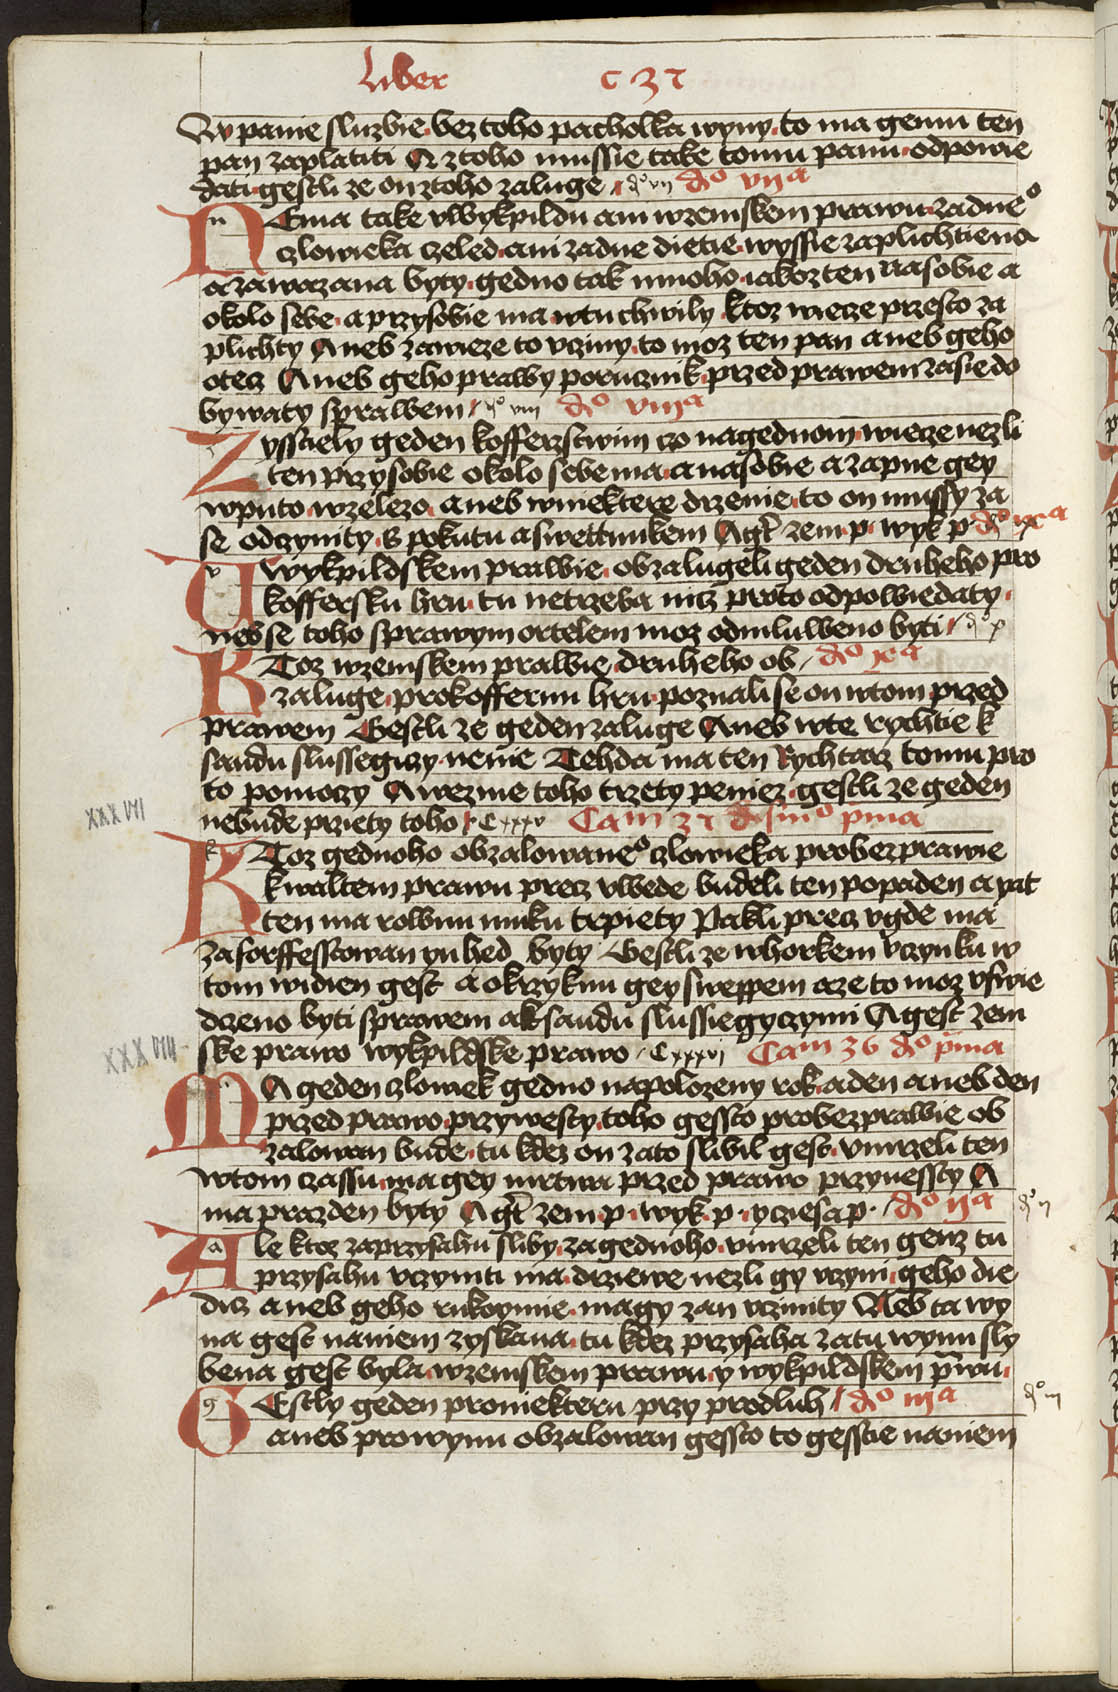 Liber C 3 7
Wy panie sluzbie bez toho pacholka wyny to ma gemu ten
pan zaplatiti A z toho mussie take tomu panu odpowie
dati gestli ze on z toho zaluge do vii do viia
NEma take vwykpildu ani wzemskem prawu zadneo
czlowieka czeled ani zadne dietie wyssie zaplichtiena
a zawazana byty gedno tak mnoho iakoz ten na sobie a
okolo sebe a przysobie ma wtu chwily ktoz wiecze przesto za
plichty Aneb zawieze to vcziny to moz ten pan aneb geho
otecz Aneb geho prawy porucznik przed prawem zasie do
bywaty sprawem do viii do viiia
Zyssczely geden kofferscwim czo nagednom wiecze nezli
ten przysobie okolo sebe ma a nasobie a zapne gey
wputo wzelezo aneb wniektere drzenie to on mussy za
se odczynity s pokutu a swettunkem A gt zem p wyk p do ixa
Vwykpildskem prawie obzalugeli geden druheho pro
koffersku hru tu netrzeba nicz proto odpowiedaty
neb se toho sprawym ortelem moz odmluweno byti do x
KToz wzemskem prawie druheho ob do xa
zaluge prokofferni hru poznali se on wtom przed
prawem Gestli ze geden zaluge Aneb wte rychtie k
saudu slussegiczy nenie Tehda ma ten Rychtarz tomu pro
to pomoczy A wezme toho trzety peniez gestli ze geden
nebude prziety toho Cxxxv Cam 37 distino pma
XXXVII
KToz gednoho obzalowaneo czlowieka probezprawie
kwaltem prawu precz vwede budeli ten popaden a yat
ten ma rownu muku trpiety Pakli precz vgde ma
zaforffessowan ynhed byty Gestli ze whorkem vczynku w
tom widien gest a okrzyknu gey swerppem aze to moz vswie
dczeno byti sprawem ak saudu slussiegyczymi A gest zem
ske prawo wykpildske prawo Cxxxvi Cam 36 do pma
XXXVIII
MA geden czlowiek gedno napolozeny rok a den aneb den
przed prawo przywesty toho gessto probezprawie ob
zalowan bude tu kdez on zato slibil gest vmrzeli ten
wtom czassu ma gey mrtwa przed prawo przynessty A
ma prazden byty A gt zem p wyk p y cziesa p do iia do ii
Ale ktoz zaprzysahu sliby zagednoho vmrzeli ten genz tu
przysahu vczyniti ma drziewe nezli gy vczyni geho die
dicz aneb geho rukoymie magy zan vcziniti Neb ta wy
na gest naniem zyskana tu kdez przysaha zatu wynu sly
bena gest byla wzemskem prawu y wykpildskem pwu
GEstly geden proniekteru przy prodluh do iiia do iii
aneb prowynu obzalowan gessto to gesstie naniem